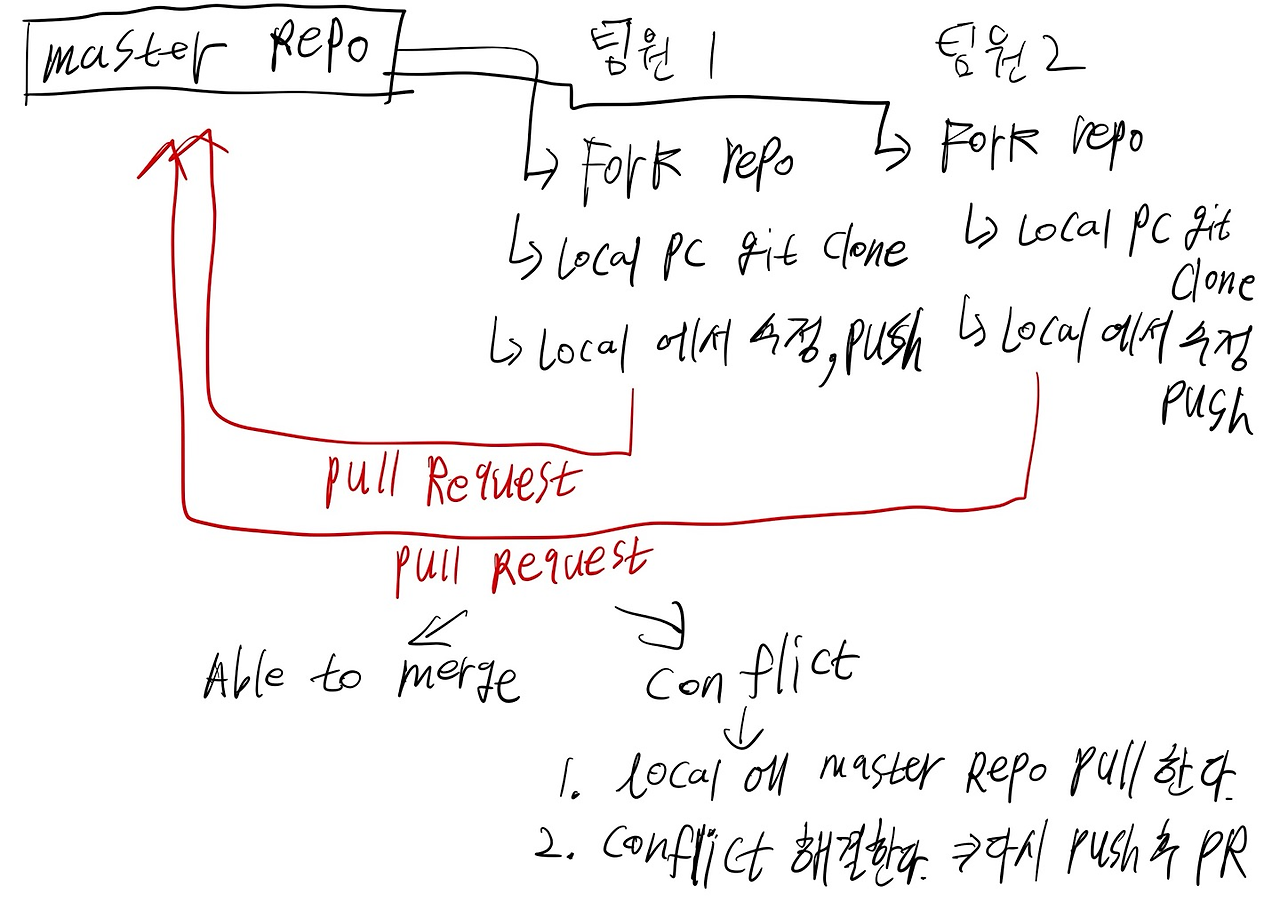 master Repo
팀원 1
Fork repo
↳ Local PC git clone
↳ Local 에서 수정, push
팀원 2
Fork repo
↳ Local PC git
Clone
↳ Local 에서 수정
push
pull Request
pull Request
Able to merge
Conflict
1. local 에 master Repo pull 한다.
2. Conflict 해결한다. ⇒다시 push 후 PR